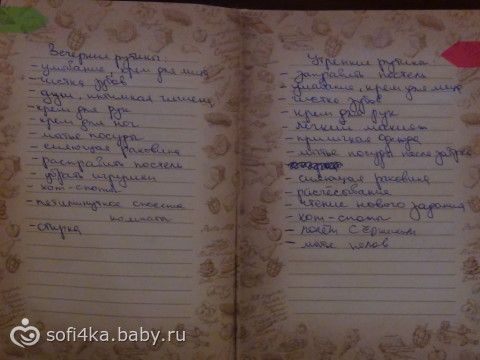 Вечерние рутины:
- умывание, крем для лица
- чистка зубов
- душ, интимная гигиена
- крем для рук
- крем для ног
- мытьё посуды
- сияющая раковина
- расправить постель
- убрать игрушки
- хот-споты
- пятиминутное спасение
комнаты
- стирка
Утренние рутины:
- заправить постель
- умывание, крем для лица
- чистка зубов
- крем для рук
- лёгкий макияж
- причёска
- мытьё посуды после завтрака
- сияющая раковина
- расчёсывание
- чтение нового задания
- хот-споты
- полёт с
- мытьё полов
sofi4ka.baby.ru